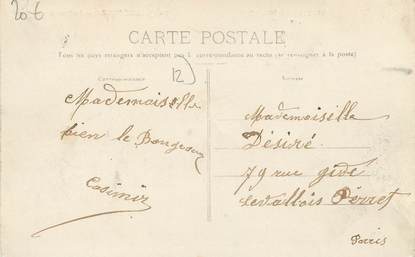 20.6
CARTE POSTALE
Tous les pays étrangers n'acceptent pas la correspondance au recto (se renseigner à la poste)
Correspondance
12
Adresse
Mademoiselle
bien le Bonjour
Casimir
Mademoiselle
Désiré
79 rue gide
Levallois Perret
Paris